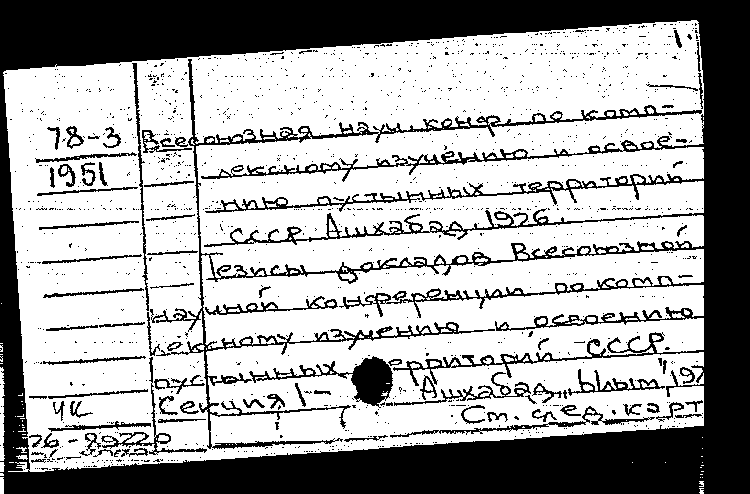 1.
78-3 Всесоюзная науч. конф. по комп-
1951 лексному изучению и освое-
нию пустынных территорий
СССР. Ашхабад. 1976.
Тезисы докладов Всесоюзной
научной конференции по комп-
лексному изучению и освоению
пустынных территорий СССР.
ЧК Секция 1- Ашхабад, „Ылым", 197
См. след. карт
76-80220